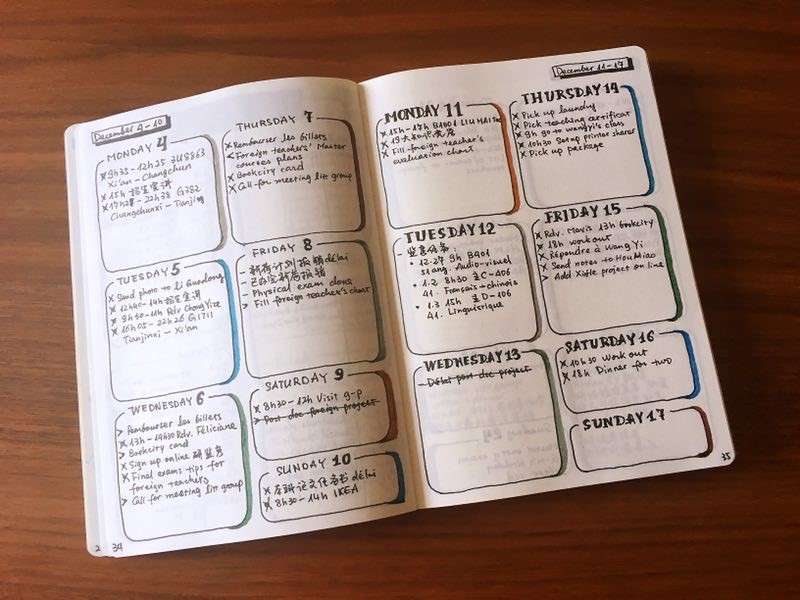 December 4-10
MONDAY 4
× 9h35-12h25 3U8863
Xi'an - Changchun
× 15h 招生宣讲
Changchunxi - Tianjing
TUESDAY 5
× Send photo to li Guodong
× 12h40-14h 招生宣讲
× 9h50-11h Rdv. Chong Yixe
× 16h05-22h26 G1711
Tianjinxi - Xi'an
WEDNESDAY 6
> Rembourser les billets
× 13h-14h30 Rdv. Féliciane
> Bookcity card
× Sign up online
× Final exams tips for
foreign teachers
> Call for meeting litt group
34
THURSDAY 7
× Rembourser les billets
< Foreign teachers' Master
courses plans
× Bookcity card
× Call for meeting litt group
FRIDAY 8
délai
- Physical exam done
> Fill foreign teacher's chart
SATURDAY 9
× 8h30-12h Visit g-p
> Post doc foreign project
SUNDAY 10
× 本科论文任务书 délai
× 8h30-14h IKEA
December 11-17
MONDAY 11
× 15h-17h BA001 LIU HAITAO
× 19大知识竞答
× Fill foreign teacher's
evaluation chart
TUESDAY 12
- 监考任务:
• 12.27 9h BA01
51 ang. Audio-visuel
• 1.2 8h30 主C-406
41. Français-chinois
• 1.3 15h 主D-106
41. Linguistique
WEDNESDAY 13
- Délai post doc project
THURSDAY 14
× Pick up laundry
× Pick teaching certificat
× 9h go to wangyi's class
× 10h30 Setup printer sharer
× Pick up package
FRIDAY 15
× Rdv. Mavis 13h bookcity
× 18h work out
× Répondre à Wang Yi
× Send notes to Hou Miao
> Add project on line
SATURDAY 16
× 10h30 Work out
× 18h Dinner for two
SUNDAY 17
35